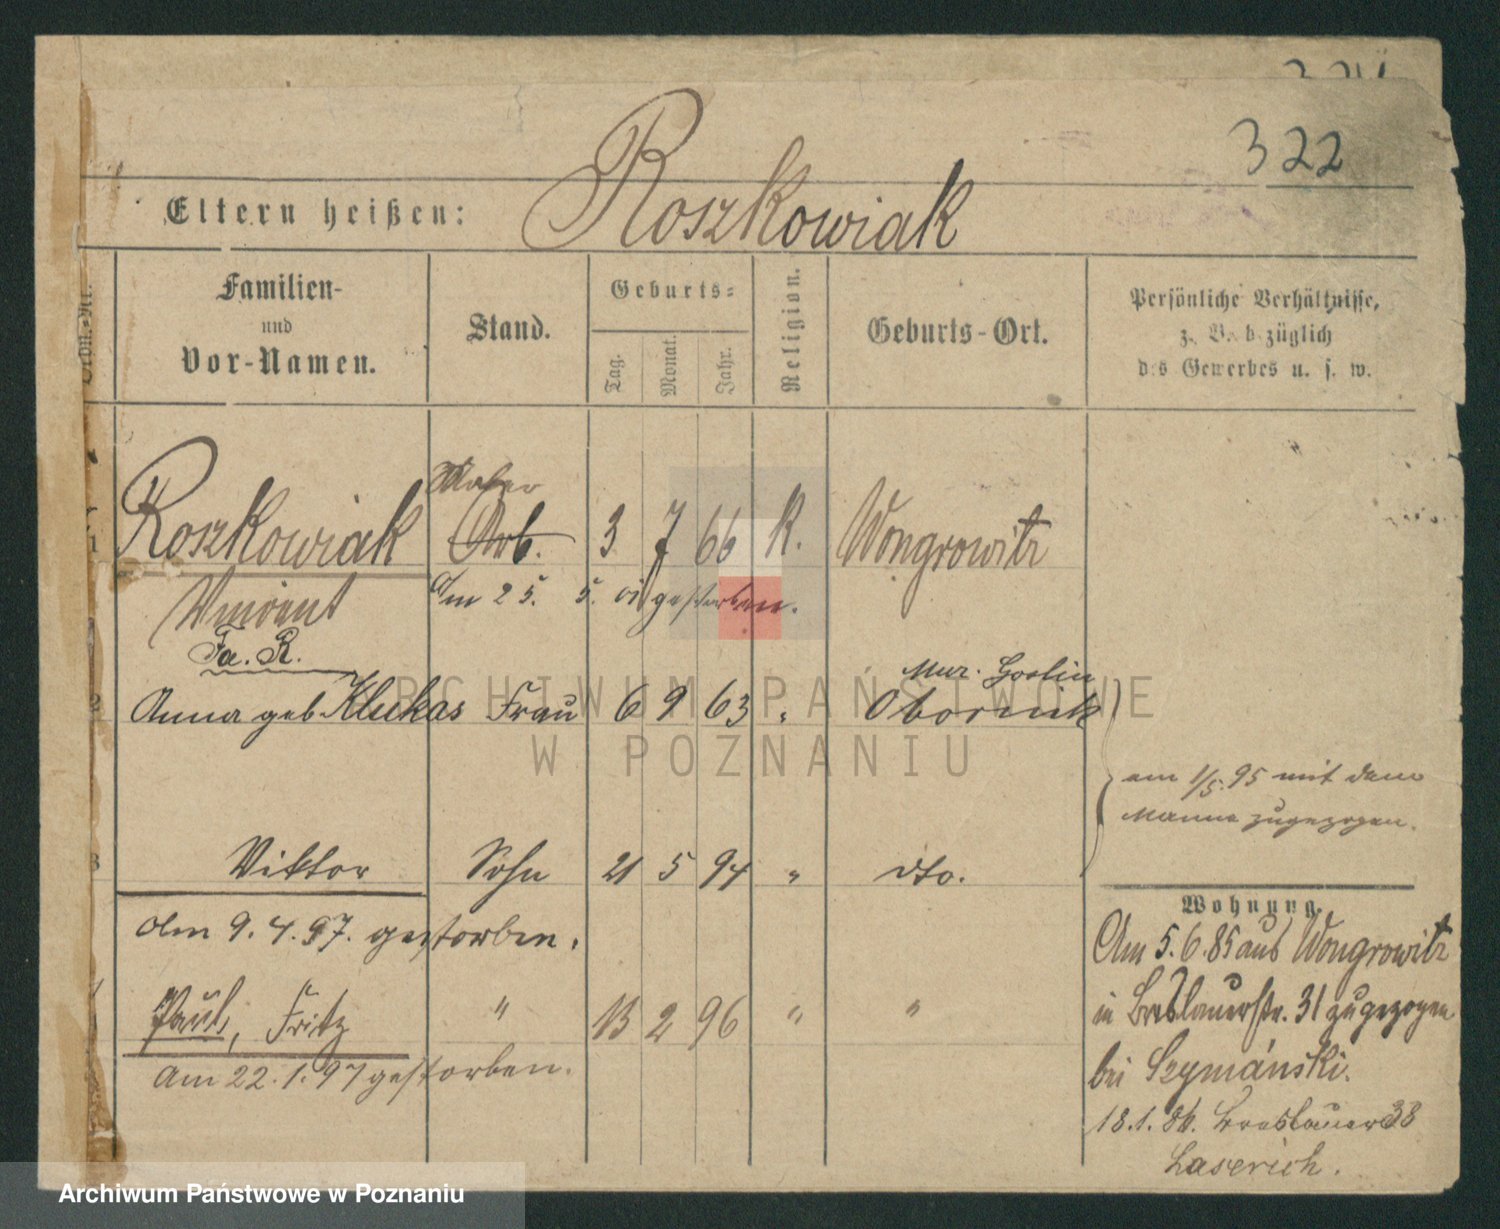 322
Eltern heißen: Roszkowiak
Familien-
und
Vor-Namen.
Stand.
Geburts-
Tag.
Monat.
Jahr.
Religion.
Geburts-Ort.
Persönliche Verhältnisse,
z. B. bezüglich
des Gewerbes u. s. w.
1 Roszkowiak Arb. 3 7 66 K. Wongrowitz
Vincent Am 25. 5. 01 gestorben.
Fa. R.
Mur. Goslin
2 Anna geb. Klukas Frau 6 9 63 " Obornik
am 1/5. 95 mit dem
Manne zugezogen.
3 Viktor Sohn 21 5 94 " dto.
Am 9. 4. 97. gestorben.
Paul, Fritz " 13 2 96 " "
Am 22. 1. 97 gestorben.
Wohnung.
Am 5. 6. 85 aus Wongrowitz
in Breslauerstr. 31 zugezogen
bei Szymański.
18. 1. 86. Breslauer 33
Laserich.
ARCHIWUM PAŃSTWOWE
W POZNANIU
Archiwum Państwowe w Poznaniu